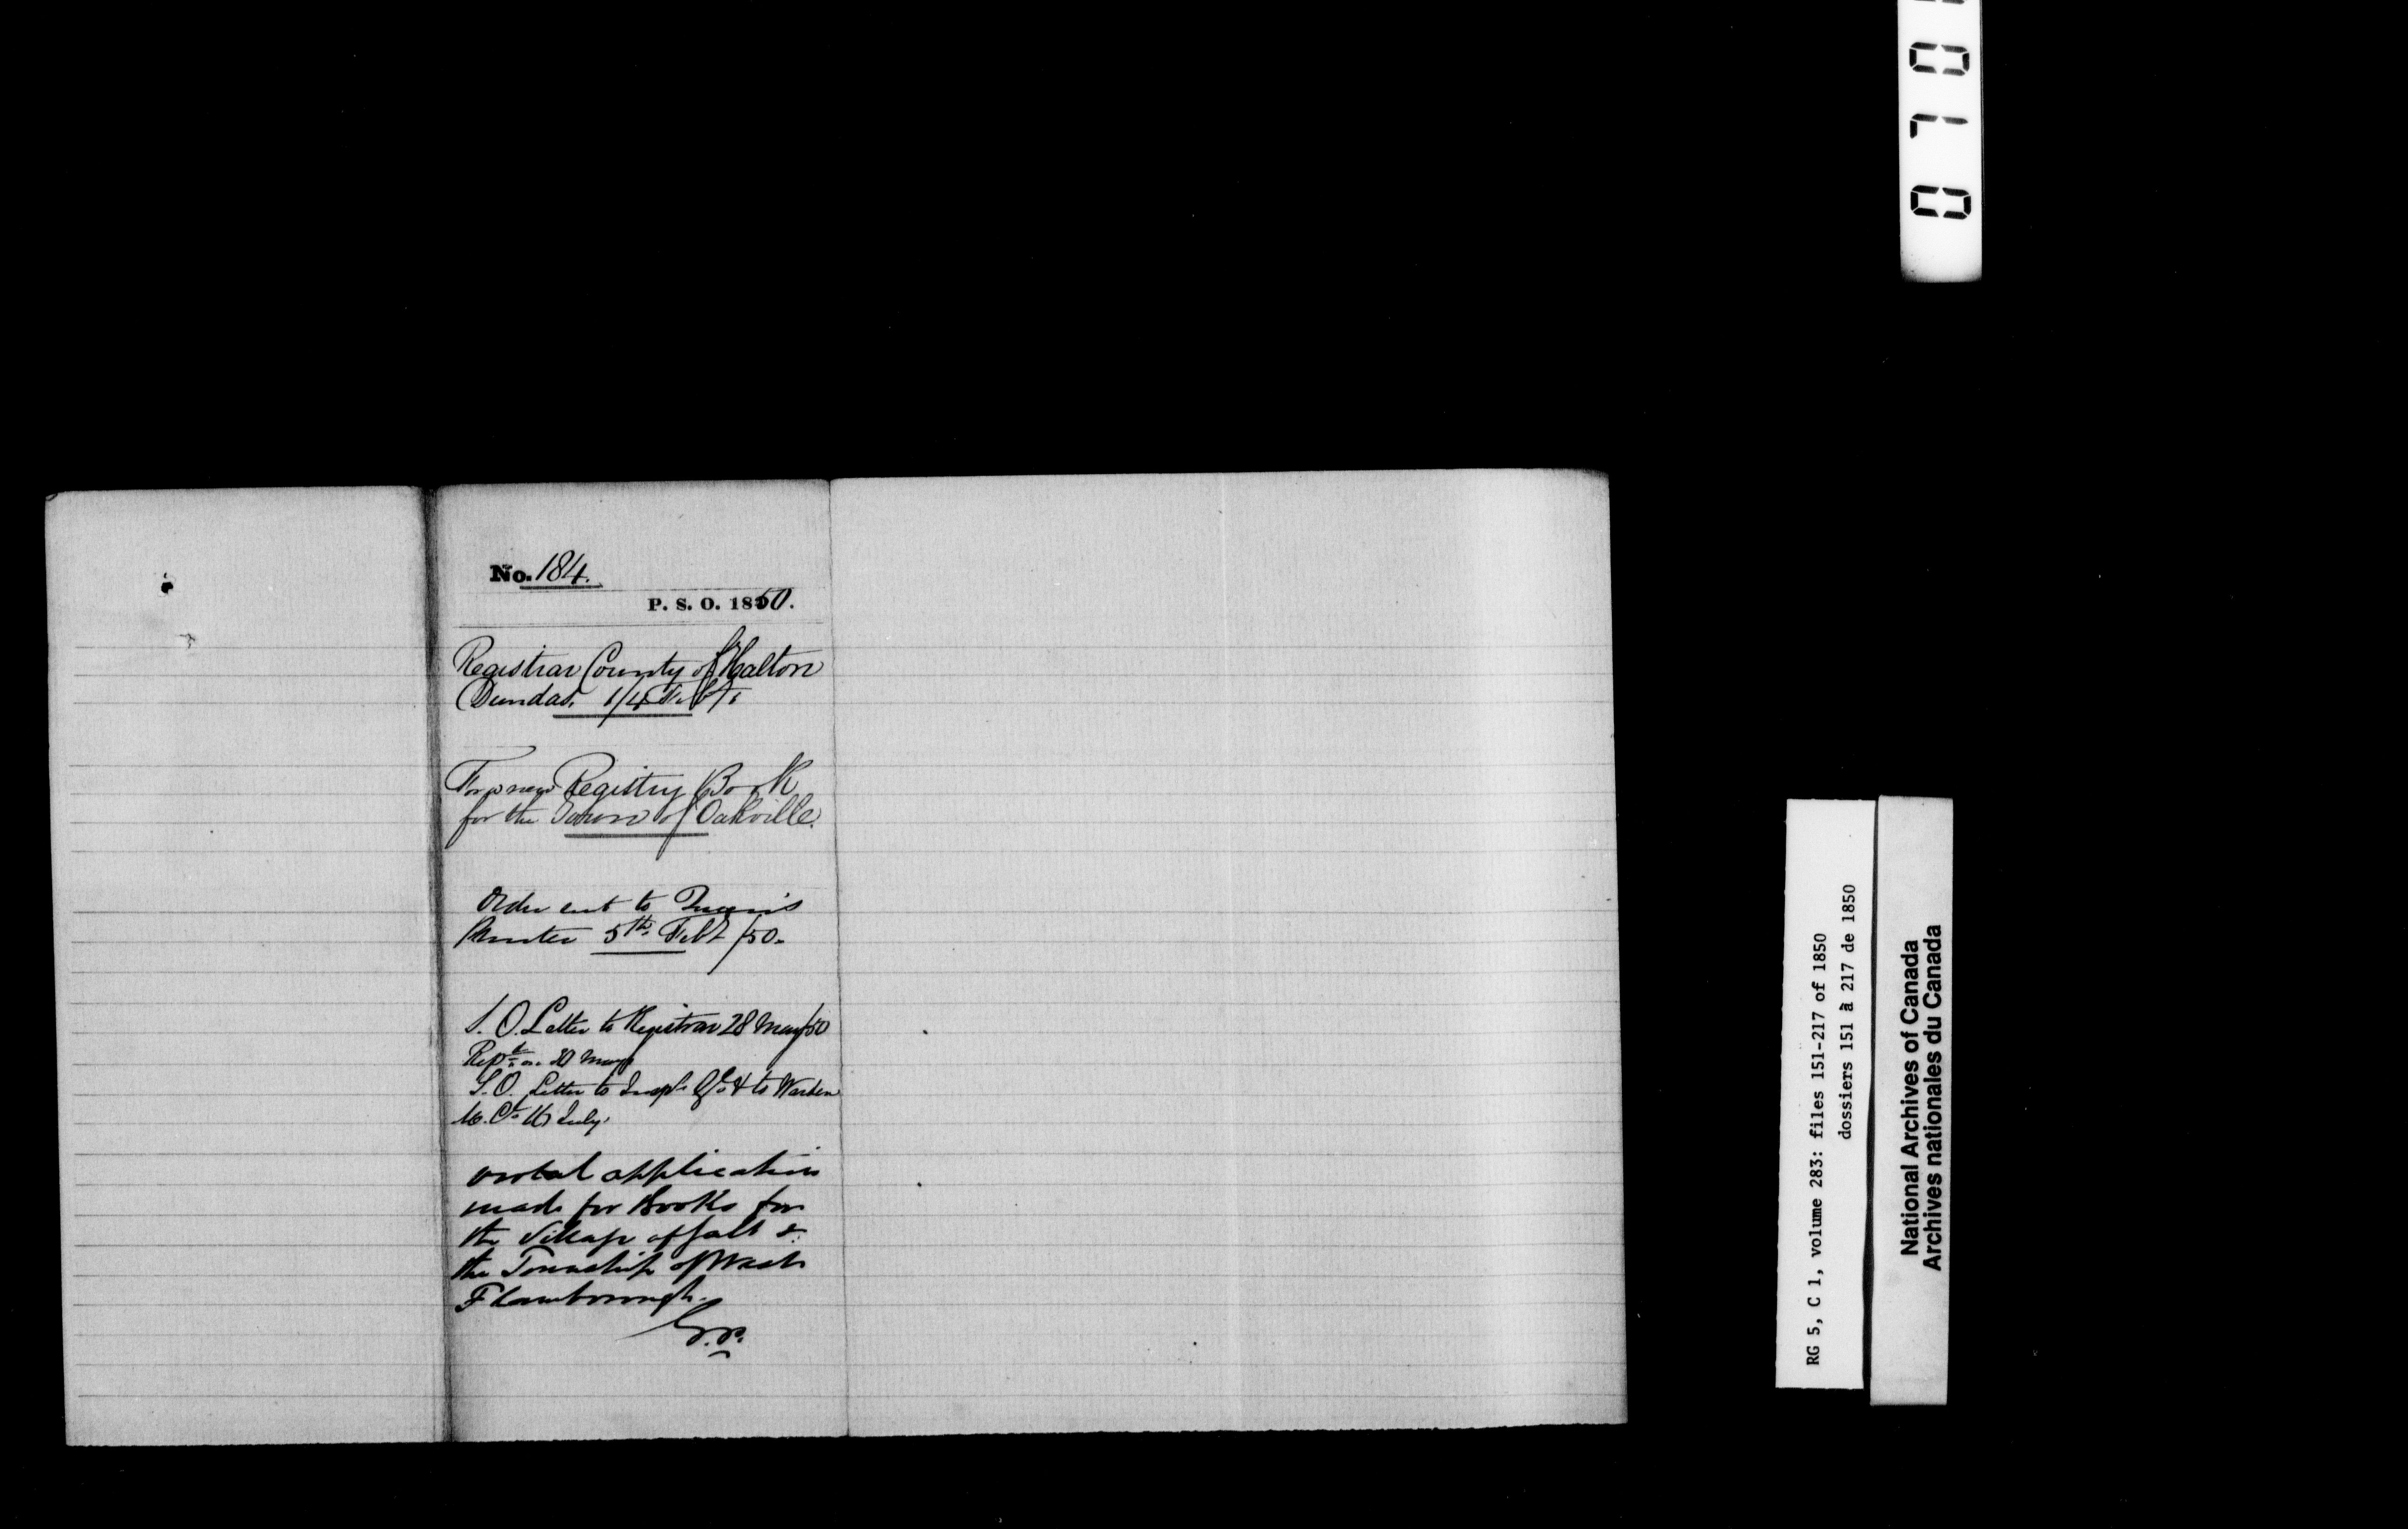 No. 184.
P. S. O. 1850.
Registrar County of Halton
Dundas, 1/4 Feb/
For new Registry Book
for the Town of Oakville.
Order sent to Queen's
Printer 5th. Feby /50.
S. O. Letter to Registrar 28 May/50
Repd. on 30 May
S. O. Letter to Inspr. Gl. & to Warden
16 July.
verbal application
made for Books for
the Village of Galt &
the Township of West
Flamborough.
010
RG 5, C 1, volume 283: files 151-217 of 1850
dossiers 151 à 217 de 1850
National Archives of Canada
Archives nationales du Canada